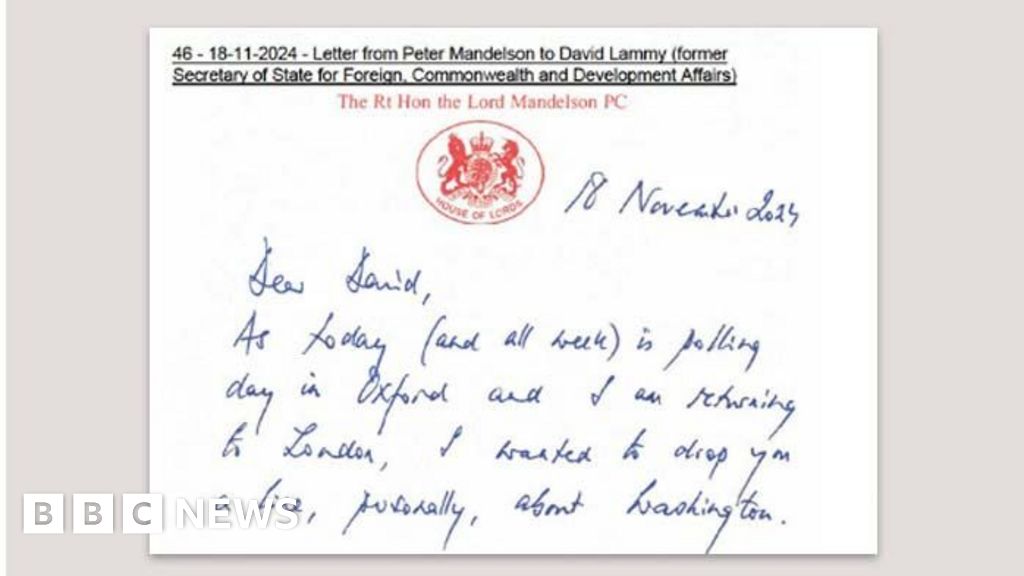 46 - 18-11-2024 - Letter from Peter Mandelson to David Lammy (former
Secretary of State for Foreign, Commonwealth and Development Affairs)
The Rt Hon the Lord Mandelson PC
HOUSE OF LORDS
18 November 2024
Dear David,
As today (and all week) is polling
day in Oxford and I am returning
to London, I wanted to drop you
a line, personally, about Washington.
BBC NEWS